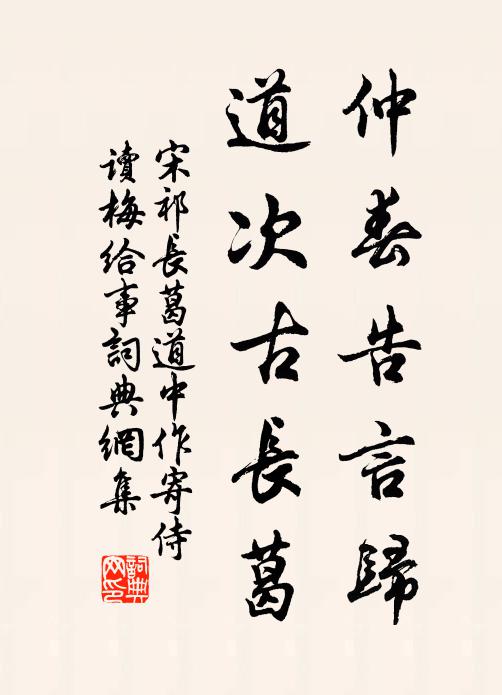 仲春告言歸
道次古長葛
宋祁長葛道中作寄侍
讀梅給事詞典網集
詞典网印